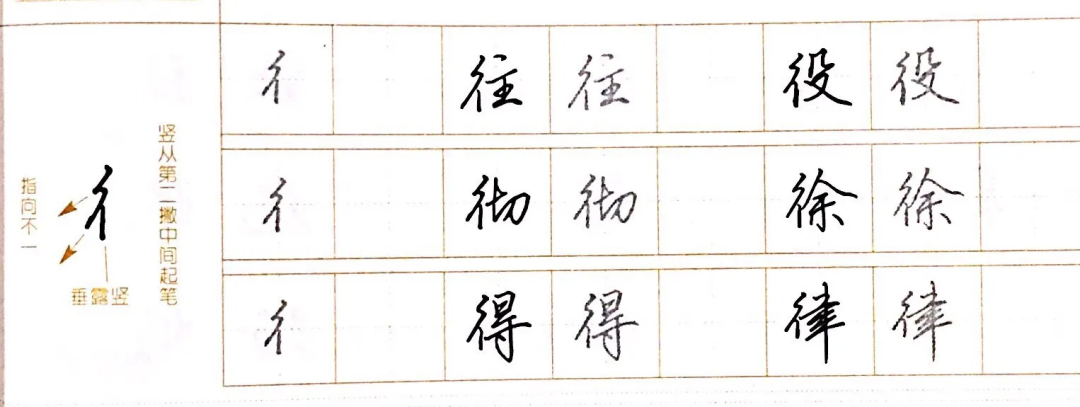 竖从第二撇中间起笔
指向不一
彳
垂露竖
彳 往 往 役 役
彳 彻 彻 徐 徐
彳 得 得 律 律